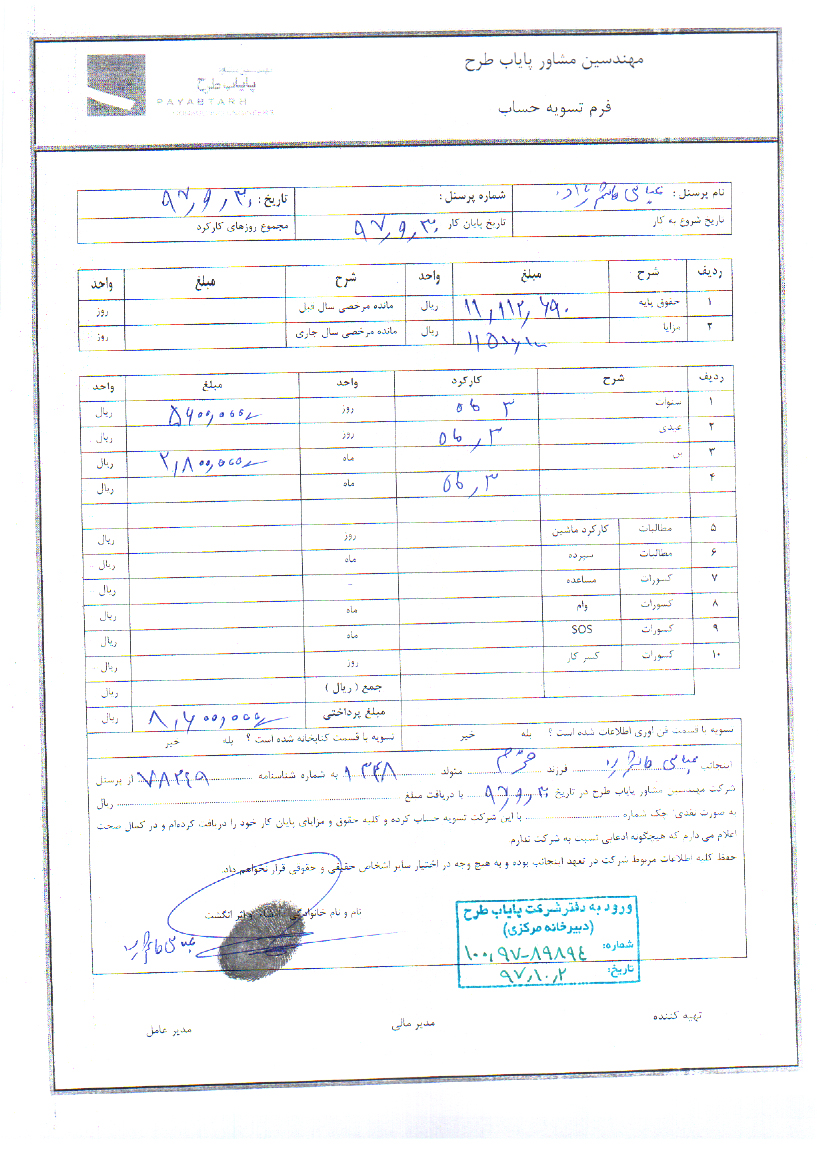 مهندسین مشاور پایاب طرح
فرم تسویه حساب
پایاب طرح
PAYABTARH
نام پرسنل : عباس شماره پرسنل : تاریخ : ۹۷٫۹٫۳۰
تاریخ شروع به کار تاریخ پایان کار ۹۷٫۹٫۳۰ مجموع روزهای کارکرد
ردیف شرح مبلغ واحد شرح مبلغ واحد
۱ حقوق پایه ۱۱٫۱۱۲٫۶۹۰ ریال مانده مرخصی سال قبل روز
۲ مزایا ریال مانده مرخصی سال جاری روز
ردیف شرح کارکرد واحد مبلغ واحد
۱ سنوات ۳ ماه روز ۵۶۰۰٫۰۰۰ ریال
۲ عیدی ۳ ماه روز ریال
۳ ماه ۲٫۸۰۰٫۰۰۰ ریال
۴ ۳ ماه ماه ریال
۵ مطالبات کارکرد ماشین روز ریال
۶ مطالبات سپرده ماه ریال
۷ کسورات مساعده - ریال
۸ کسورات وام ماه ریال
۹ کسورات SOS ماه ریال
۱۰ کسورات کسر کار روز ریال
جمع ( ریال ) ریال
مبلغ پرداختی ۸٫۴۰۰٫۰۰۰ ریال
تسویه با قسمت فن آوری اطلاعات شده است ؟ بله خیر تسویه با قسمت کتابخانه شده است ؟ بله خیر
اینجانب عباس فرزند متولد ۱۳۴۸ به شماره شناسنامه ۷۸۳۶۹ از پرسنل
شرکت مهندسین مشاور پایاب طرح در تاریخ ۹۷٫۹٫۳۰ با دریافت مبلغ ریال
به صورت نقدی/ چک شماره با این شرکت تسویه حساب کرده و کلیه حقوق و مزایای پایان کار خود را دریافت کرده‌ام و در کمال صحت
اعلام می دارم که هیچگونه ادعایی نسبت به شرکت ندارم
حفظ کلیه اطلاعات مربوط شرکت در تعهد اینجانب بوده و به هیچ وجه در اختیار سایر اشخاص حقیقی و حقوقی قرار نخواهم داد.
نام و نام خانوادگی اثر انگشت
عباس
ورود به دفتر شرکت پایاب طرح
(دبیرخانه مرکزی)
شماره: ۱۰۰٫۹۷-۸۹۸۹۴
تاریخ: ۹۷٫۱۰٫۲
تهیه کننده مدیر مالی مدیر عامل